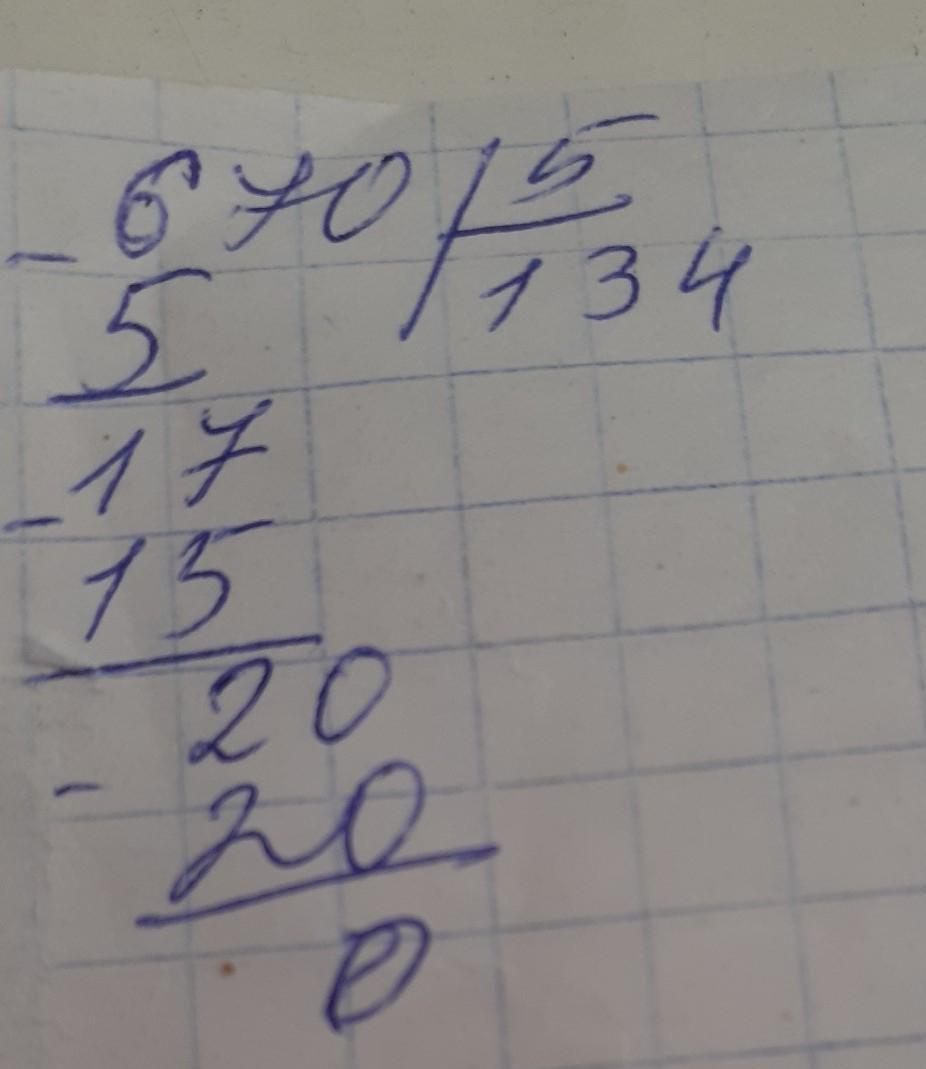 - 670 | 5
5 134
- 17
15
- 20
20
0